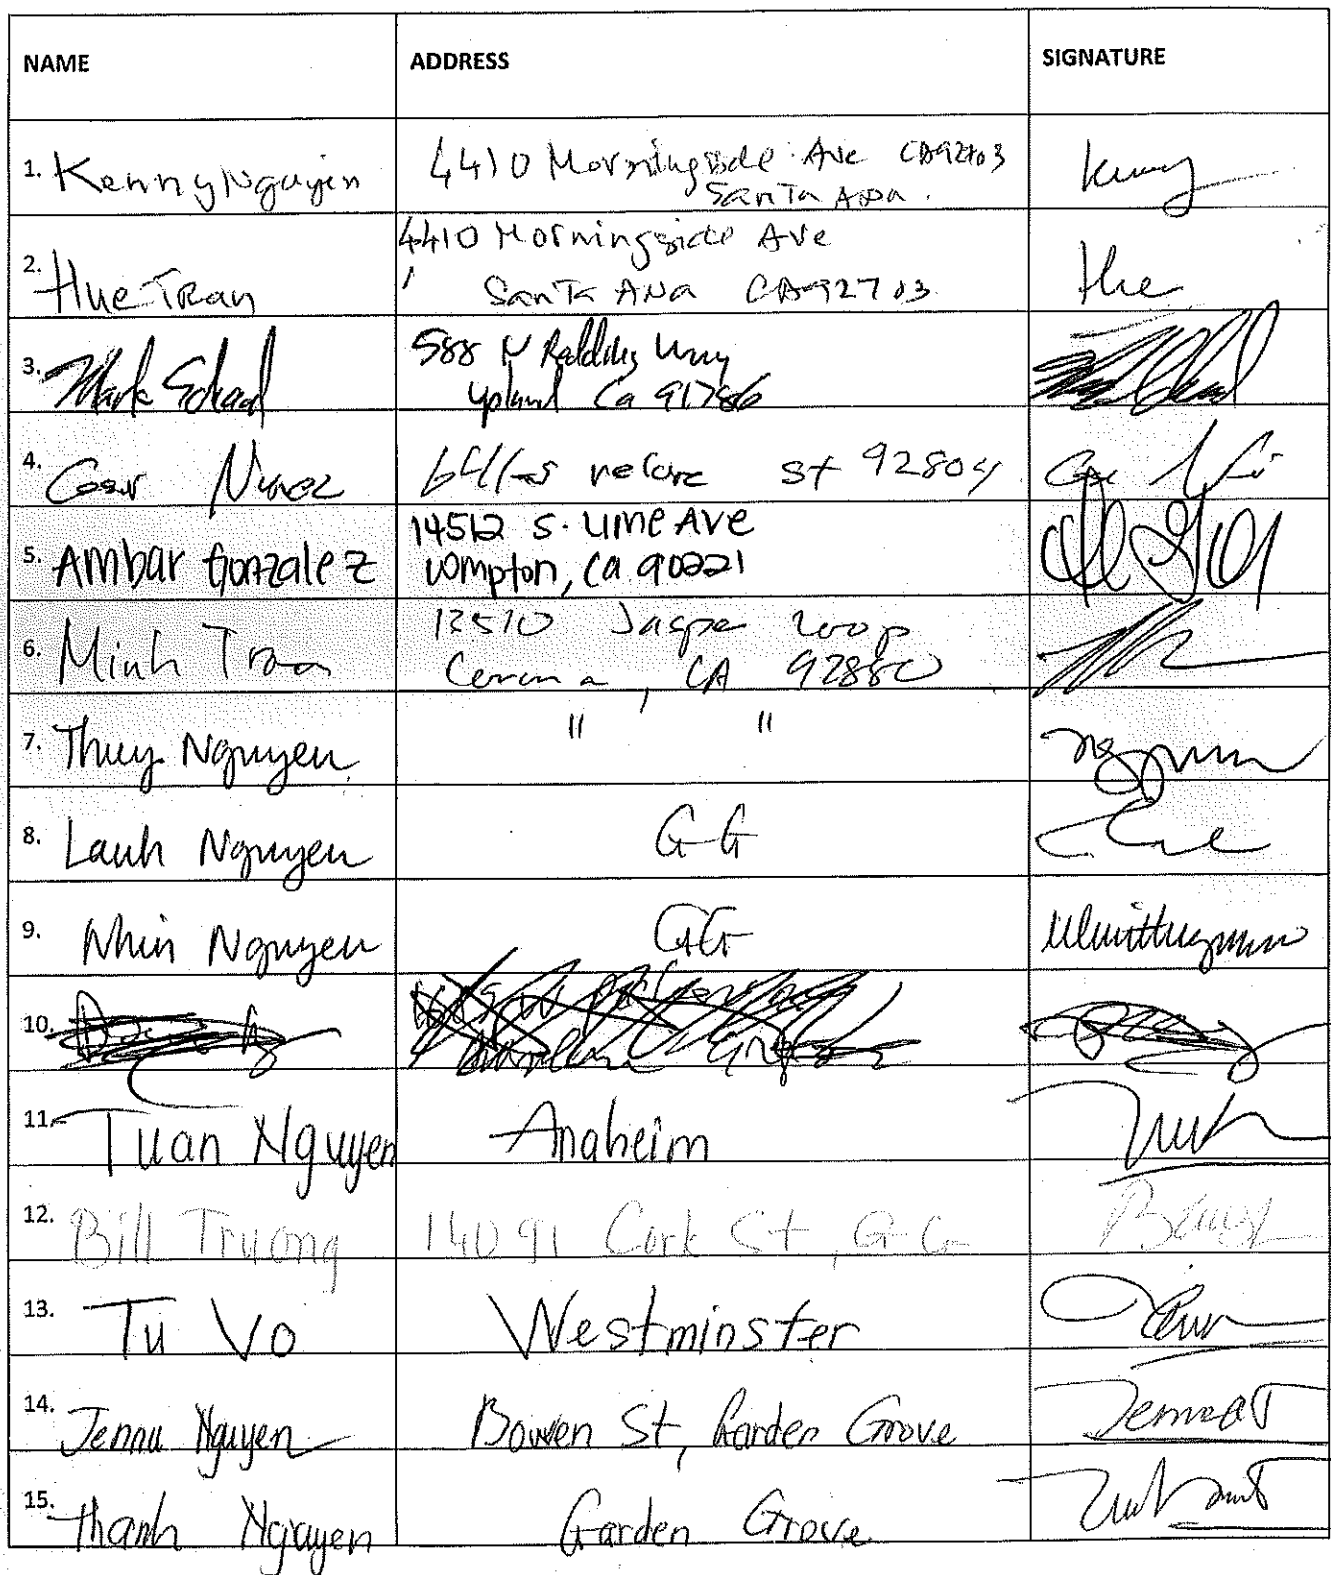 NAME ADDRESS SIGNATURE
1. Kenny Nguyen 4410 Morningside Ave CA92703
Santa Ana.
Kenny
2. Hue Tran 4410 Morningside Ave
Santa Ana CA92703
Hue
3. Mark Schaad 588 N Redding Way
Upland Ca 91786
4. Cesar Nunez St 92804
5. Ambar Gonzalez 14512 S. Lime Ave
Compton, Ca 90221
6. Minh Tran 13510 Jasper Loop
Corona, CA 92880
7. Thuy Nguyen " "
8. Lanh Nguyen GG
9. Nhin Nguyen GG
10.
11. Tuan Nguyen Anaheim
12. Bill Truong 14091 Cork St, GG
13. Tu Vo Westminster
14. Jenna Nguyen Bowen St, Garden Grove
15. Thanh Nguyen Garden Grove